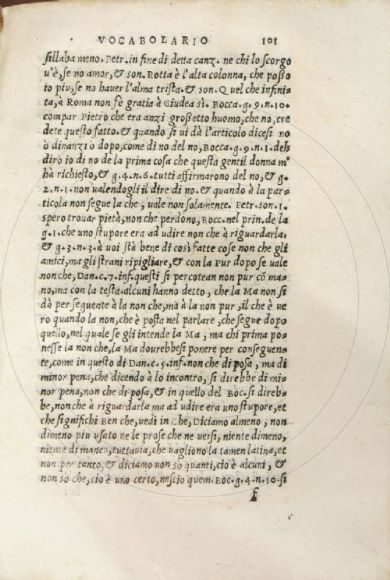 VOCABOLARIO 101
sillaba meno. Petr. in fine di detta canz. ne chi lo scorgo
u'è, se no amor, & son. Rotta è l'alta colonna, che posso
io piu, se no hauer l'alma trista. & son. Quel che infini-
ta, à Roma non fè gratia à Giudea sì. Bocca. g. 9. n. 10.
compar Pietro che era anzi grossetto huomo, che no, cre
dete questo fatto. & quando si uì dà l'articolo dicesi no
ò dinanzi ò dopo, come di no del no, Bocca. g. 9. n. 1. deh
diro io di no de la prima cosa che questa gentil donna m'
ha richiesto, & g. 4. n. 6. tutti affirmarono del no, & g.
2. n. 1. non ualendogli il dire di no. & quando à la par-
ticola non segue la che, uale non solamente. Petr. son. 1.
spero trouar pietà, non che perdono, Bocc. nel prin. de la
g. 1. che uno stupore era ad udire non che à riguardarla.
& g. 3. n. 3. à uoi stà bene di così fatte cose non che gli
amici, ma gli strani ripigliare, & con la Pur dopo se uale
non che, Dan. c. 7. inf. questi si percotean non pur cõ ma-
no, ma con la testa. alcuni hanno detto, che la Ma non si
dò per seguente à la non che, mà à la non pur, il che è ue
ro quando la non, che è posta nel parlare, che segue dopo
quello, nel quale se gli intende la Ma, ma chi prima po-
nesse la non che, la Ma dourebbesi ponere per conseguen-
te, come in questo di Dan. c. 9. inf. non che di posa, ma di
minor pena, che dicendo à lo incontro, si direbbe di mi-
nor pena, non che di posa, & in quello del Boc. si dreb-
be, non che à riguardarla ma ad udire era uno stupore, et
che significhi Ben che, uedi in Che, Diciamo almeno, non
dimeno piu usato ne le prose che ne uersi, niente dimeno,
niente di manco, tuttauia, che uagliono la tamen latina, et
non per tanto, & diciamo non so quanti, cio è alcuni, &
non so che, cio è uno certo, nescio quem. Boc. g. 4. n. 10. si
f